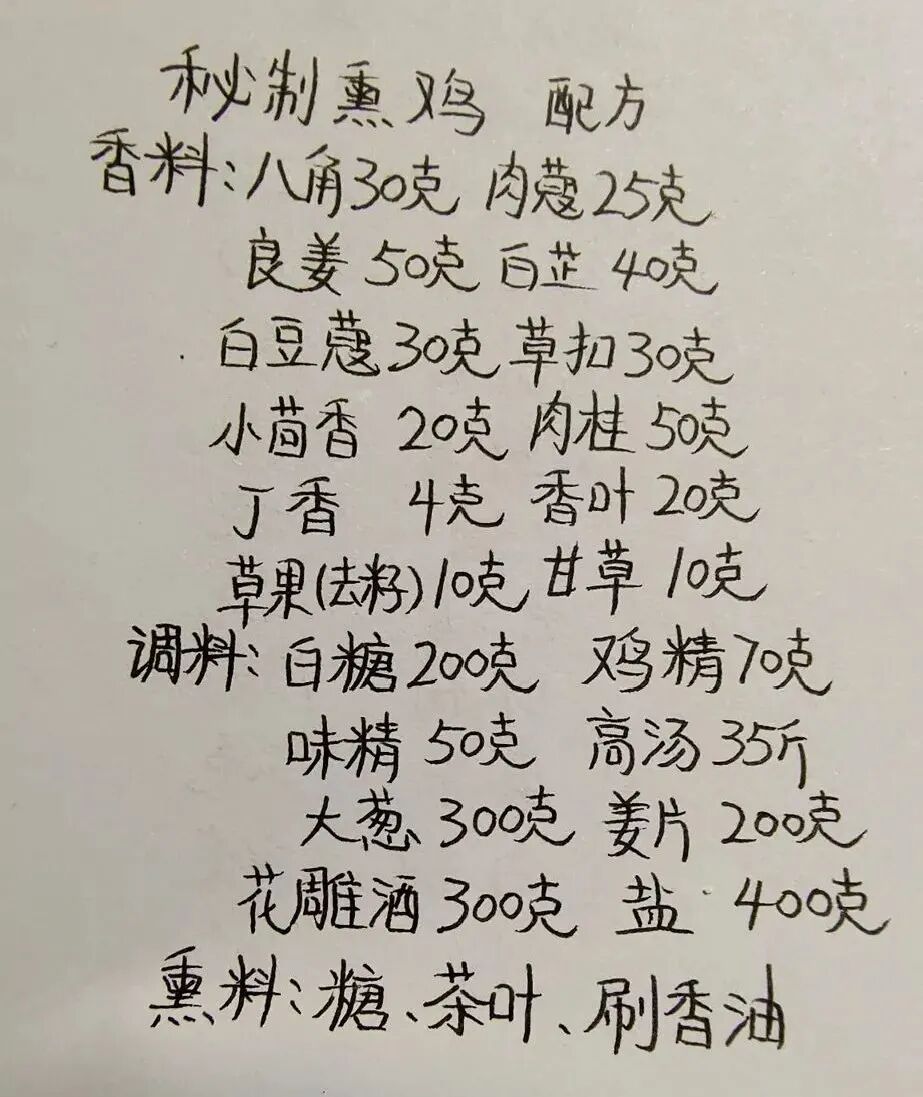 秘制熏鸡 配方
香料:八角30克 肉蔻25克
良姜 50克 白芷 40克
白豆蔻30克 草扣30克
小茴香 20克 肉桂 50克
丁香 4克 香叶 20克
草果(去籽)10克 甘草 10克
调料:白糖200克 鸡精70克
味精 50克 高汤 35斤
大葱 300克 姜片 200克
花雕酒 300克 盐 400克
熏料:糖、茶叶、刷香油